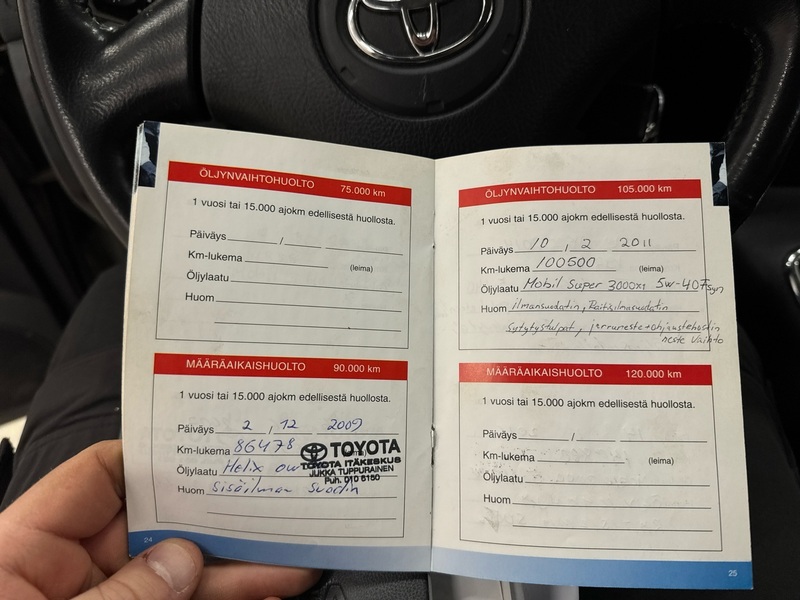 ÖLJYNVAIHTOHUOLTO 75.000 km
1 vuosi tai 15.000 ajokm edellisestä huollosta.
Päiväys / 
Km-lukema (leima)
Öljylaatu
Huom
MÄÄRÄAIKAISHUOLTO 90.000 km
1 vuosi tai 15.000 ajokm edellisestä huollosta.
Päiväys 2 / 12 2009
Km-lukema 86478
Öljylaatu Helix
Huom Sisäilman suodin
TOYOTA
TOYOTA ITÄKESKUS
JUKKA TUPPURAINEN
Puh. 010 6150
24
ÖLJYNVAIHTOHUOLTO 105.000 km
1 vuosi tai 15.000 ajokm edellisestä huollosta.
Päiväys 10 / 2 2011
Km-lukema 100500 (leima)
Öljylaatu Mobil Super 3000x1 5w-40
Huom ilmansuodatin, Raitisilmasuodatin
Sytytystulpat, jarruneste+ohjaustehostin
neste Vaihto
MÄÄRÄAIKAISHUOLTO 120.000 km
1 vuosi tai 15.000 ajokm edellisestä huollosta.
Päiväys /
Km-lukema (leima)
Öljylaatu
Huom
25